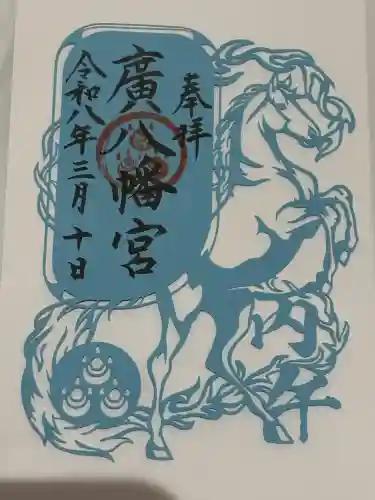 奉拝
廣八幡宮
令和八年三月十日
丙午